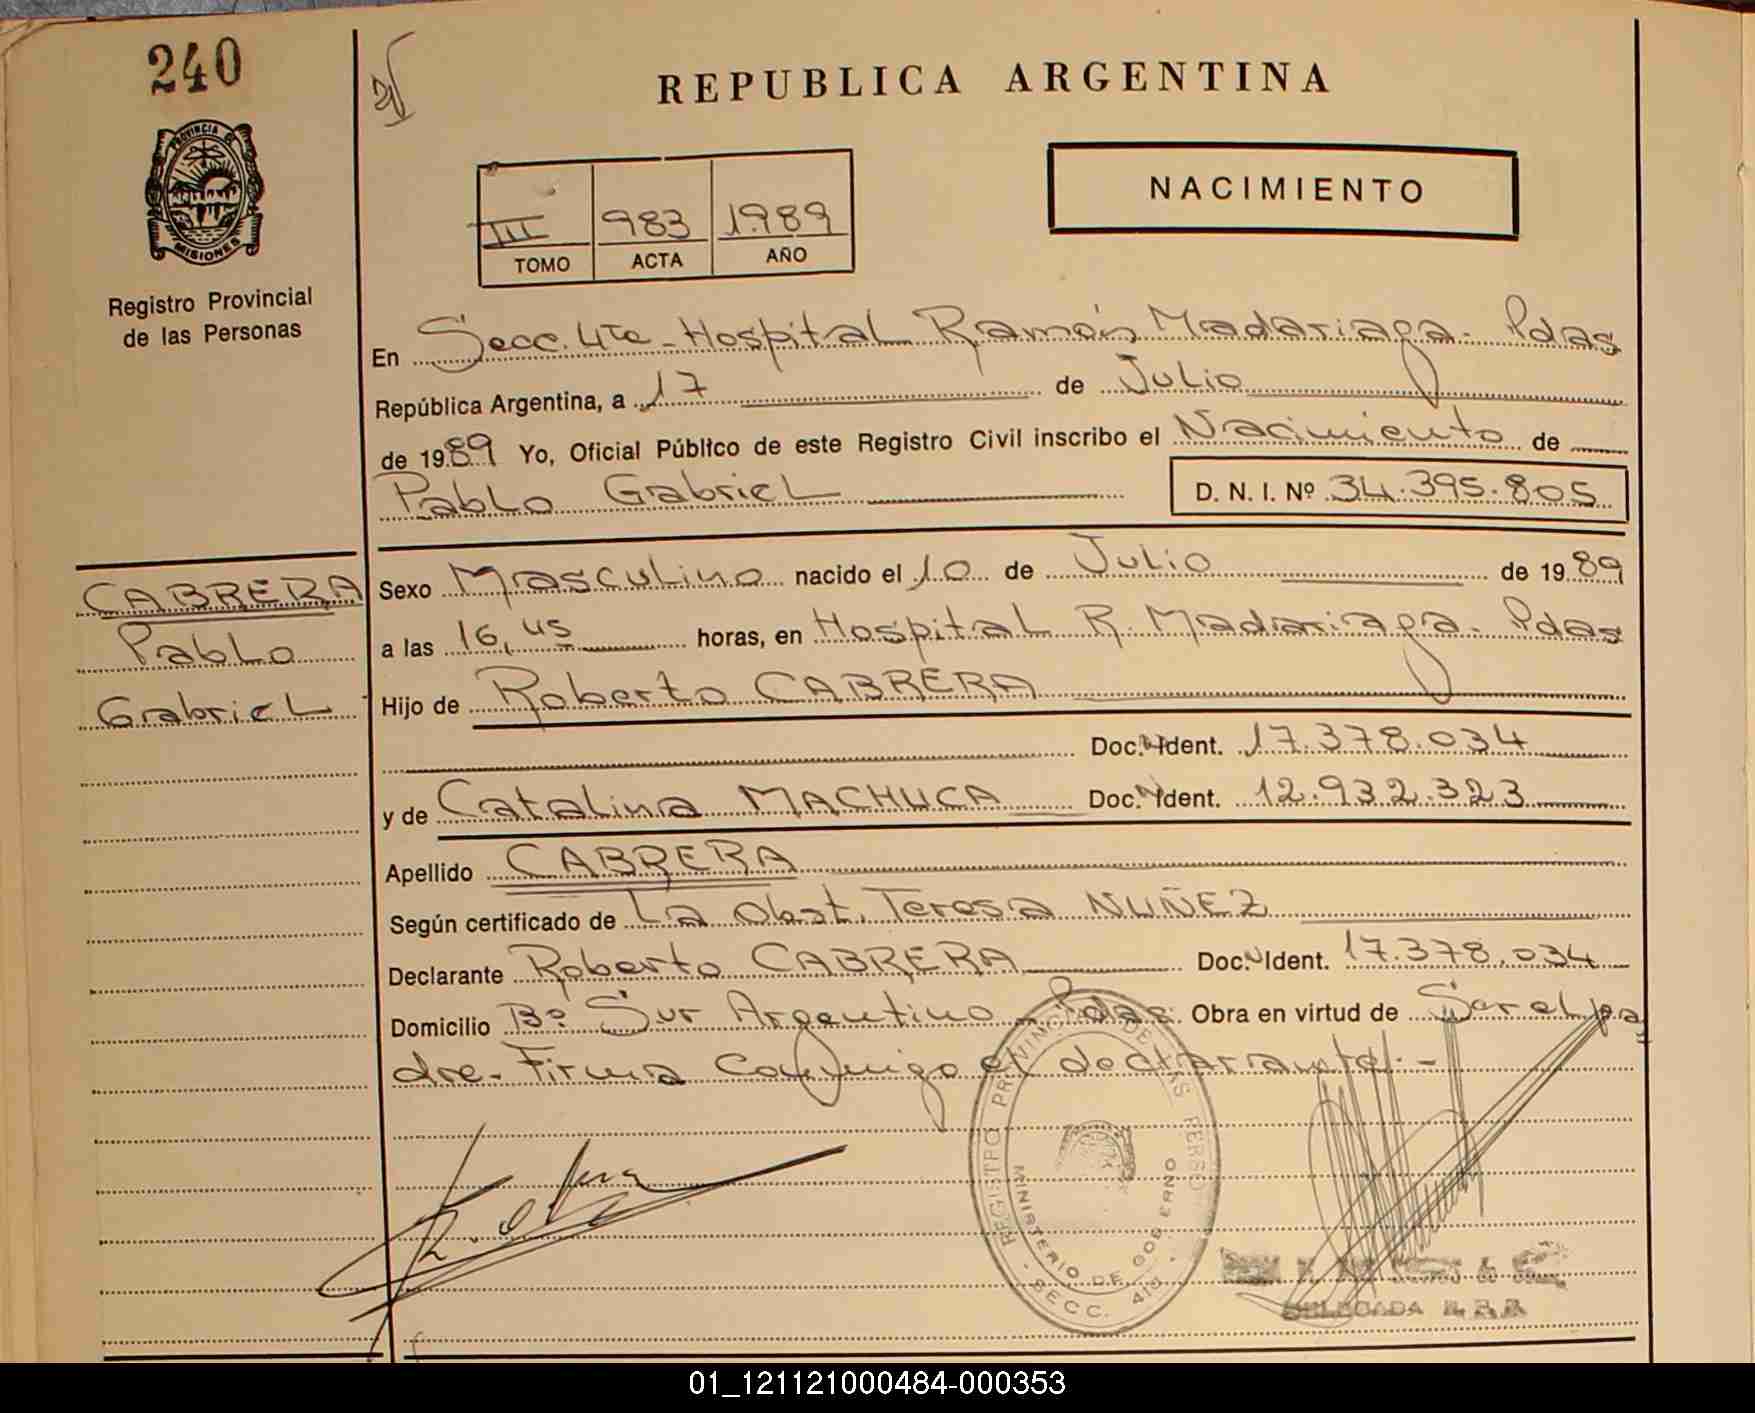 240
REPUBLICA ARGENTINA
PROVINCIA DE
MISIONES
Registro Provincial
de las Personas
III 983 1989
TOMO ACTA AÑO
NACIMIENTO
En Secc. 4ta - Hospital Ramón Madariaga. Pdas
República Argentina, a 17 de Julio
de 1989 Yo, Oficial Público de este Registro Civil inscribo el Nacimiento de
Pablo Gabriel D. N. I. Nº 34.395.805
CABRERA
Pablo
Gabriel
Sexo Masculino nacido el 10 de Julio de 1989
a las 16,45 horas, en Hospital R. Madariaga. Pdas
Hijo de Roberto CABRERA
Doc. Ident. 17.378.034
y de Catalina MACHUCA Doc. Ident. 12.932.323
Apellido CABRERA
Según certificado de La Obst. Teresa NUÑEZ
Declarante Roberto CABRERA Doc. Ident. 17.378.034
Domicilio Bº Sur Argentino - Pdas. Obra en virtud de Ser el pa
dre. Firma conmigo el declarante. -
REGISTRO PROVINCIAL DE LAS PERSONAS
MINISTERIO DE GOBIERNO
SECC. 4ta
DELEGADA
01_121121000484-000353